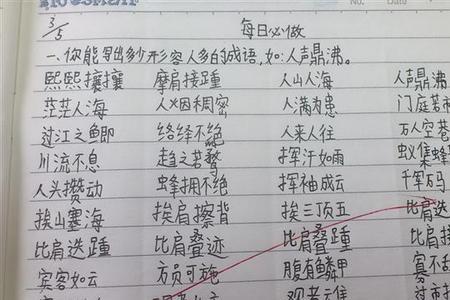 3/5
No
每日必做
一、你能写出多少形容人多的成语,如:人声鼎沸。
熙熙攘攘 摩肩接踵 人山人海 人声鼎沸
茫茫人海 人囗稠密 人满为患 门庭若市
过江之鱼即 络绎不绝 人来人往 万人空巷
川流不息 趋之若鹜 挥汗如雨 蚁集蜂
人头攒动 蜂拥不绝 挥袖成云 千军万马
挨山塞海 挨肩擦背 挨三顶五 比肩迭
比肩迭踵 比肩叠迹 比肩叠踵
宾客如云 方员可施 腹有鳞甲 寡不